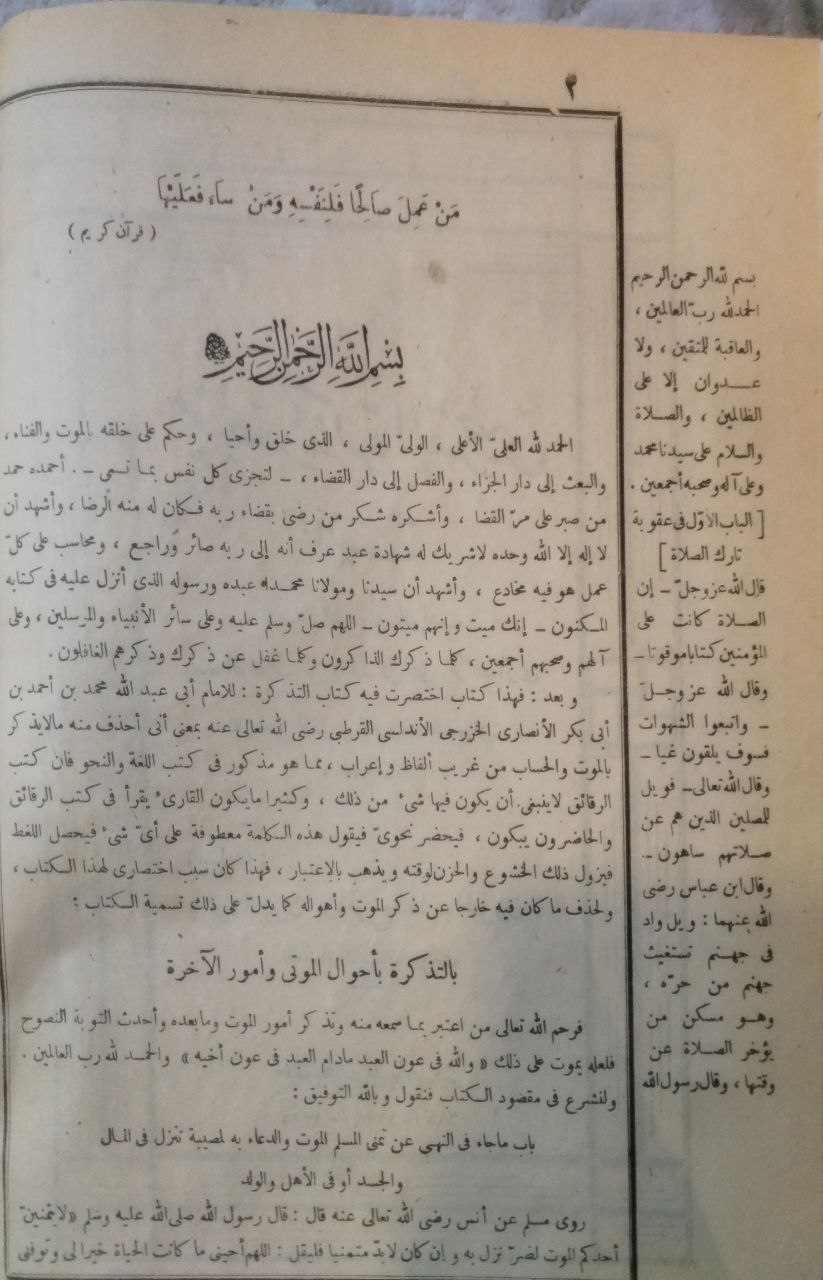 ٢
مَنْ عَمِلَ صَالِحًا فَلِنَفْسِهِ وَمَنْ سَاءَ فَعَلَيْهَا
( قرآن كريم )
بِسْمِ اللَّهِ الرَّحْمٰنِ الرَّحِيمِ
الحمد لله العلىّ الأعلى ، الولىّ المولى ، الذى خلق وأحيا ، وحكم على خلقه بالموت والفناء ،
والبعث إلى دار الجزاء ، والفصل إلى دار القضاء ، ــ لتجزى كل نفس بما تسعى ــ . أحمده حمد
من صبر على مرّ القضا ، وأشكره شكر من رضى بقضاء ربه فكان له منه الرضا ، وأشهد أن
لا إله إلا الله وحده لاشريك له شهادة عبد عرف أنه إلى ربه صائر وراجع ، ومحاسب على كلّ
عمل هو فيه مخادع ، وأشهد أن سيدنا ومولانا محمدا عبده ورسوله الذى أنزل عليه فى كتابه
المكنون ــ إنك ميت وإنهم ميتون ــ اللهم صلّ وسلم عليه وعلى سائر الأنبياء والمرسلين ، وعلى
آلهم وصحبهم أجمعين ، كلما ذكرك الذاكرون وكلما غفل عن ذكرك وذكرهم الغافلون .
وبعد : فهذا كتاب اختصرت فيه كتاب التذكرة : للامام أبى عبد الله محمد بن أحمد بن
أبى بكر الأنصارى الخزرجى الأندلسى القرطبى رضى الله تعالى عنه بمعنى أنى أحذف منه مالايذكر
بالموت والحساب من غريب ألفاظ وإعراب ، مما هو مذكور فى كتب اللغة والنحو فان كتب
الرقائق لاينبغى أن يكون فيها شىء من ذلك ، وكثيرا مايكون القارىء يقرأ فى كتب الرقائق
والحاضرون يبكون ، فيحضر نحوىّ فيقول هذه الكلمة معطوفة على أىّ شىء فيحصل اللغط
فيزول ذلك الخشوع والحزن لوقته ويذهب بالاعتبار ، فهذا كان سبب اختصارى لهذا الكتاب ،
ولحذف ما كان فيه خارجا عن ذكر الموت وأهواله كما يدلّ على ذلك تسمية الكتاب :
بالتذكرة بأحوال الموتى وأمور الآخرة
فرحم الله تعالى من اعتبر بما سمعه منه وتذكر أمور الموت ومابعده وأحدث التوبة النصوح
فلعله يموت على ذلك « والله فى عون العبد مادام العبد فى عون أخيه » والحمد لله رب العالمين .
ولنشرع فى مقصود الكتاب فنقول وبالله التوفيق :
باب ماجاء فى النهى عن تمنى المسلم الموت والدعاء به لمصيبة تنزل فى المال
والجسد أو فى الأهل والولد
روى مسلم عن أنس رضى الله تعالى عنه قال : قال رسول الله صلى الله عليه وسلم «لايتمنينّ
أحدكم الموت لضرّ نزل به وإن كان لابدّ متمنيا فليقل : اللهم أحينى ما كانت الحياة خيرا لى وتوفنى
بسم لله الرحمن الرحيم
الحمد لله ربّ العالمين ،
والعاقبة للمتقين ، ولا
عدوان إلا على
الظالمين ، والصلاة
والسلام على سيدنا محمد
وعلى آله وصحبه أجمعين .
[ الباب الأوّل فى عقوبة
تارك الصلاة ]
قال الله عز وجلّ ــ إن
الصلاة كانت على
المؤمنين كتابا موقوتا ــ
وقال الله عز وجلّ
ــ واتبعوا الشهوات
فسوف يلقون غيا ــ
وقال الله تعالى ــ فويل
للمصلين الذين هم عن
صلاتهم ساهون ــ
وقال ابن عباس رضى
الله عنهما : ويل واد
فى جهنم تستغيث
جهنم من حرّه ،
وهو مسكن من
يؤخر الصلاة عن
وقتها ، وقال رسول الله